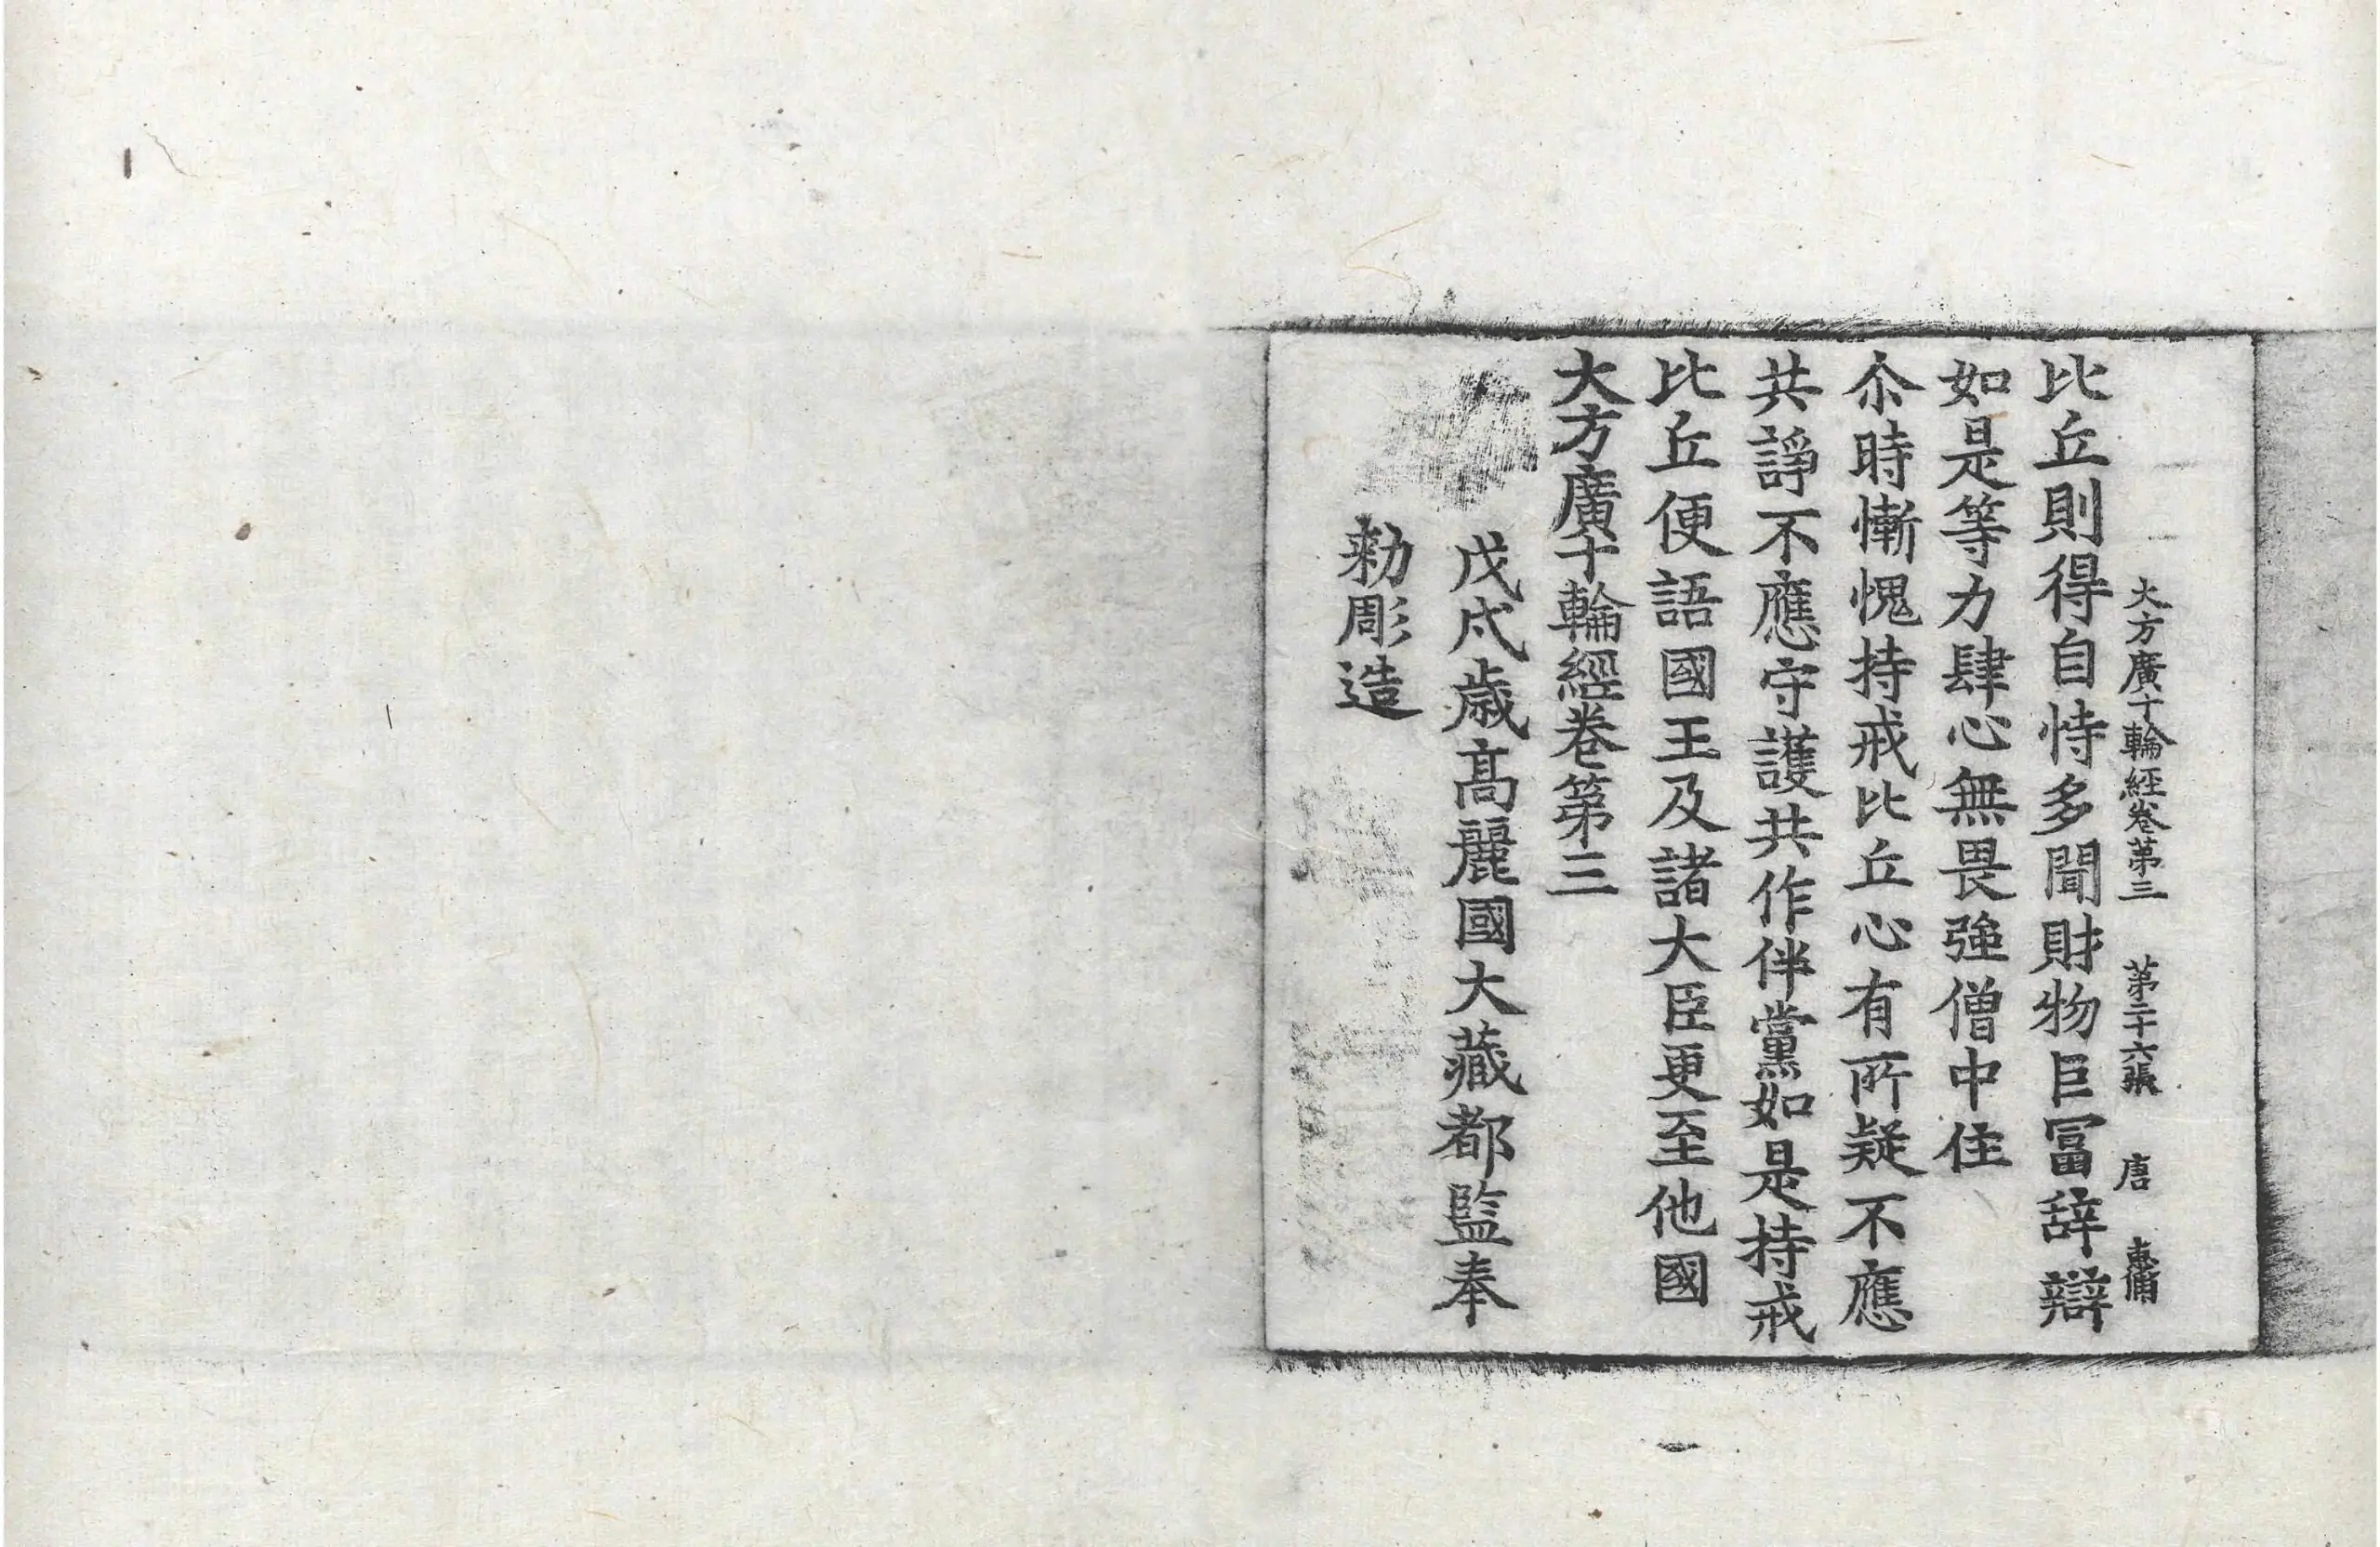 大方廣十輪經卷第三 第二十六張 唐 惠備
比丘則得自恃多聞財物巨冨辝辯
如是等力肆心無畏強僧中住
尒時慚愧持戒比丘心有所疑不應
共諍不應守護共作伴黨如是持戒
比丘便語國王及諸大臣更至他國
大方廣十輪經卷第三
戊戌歳髙麗國大藏都監奉
勑彫造